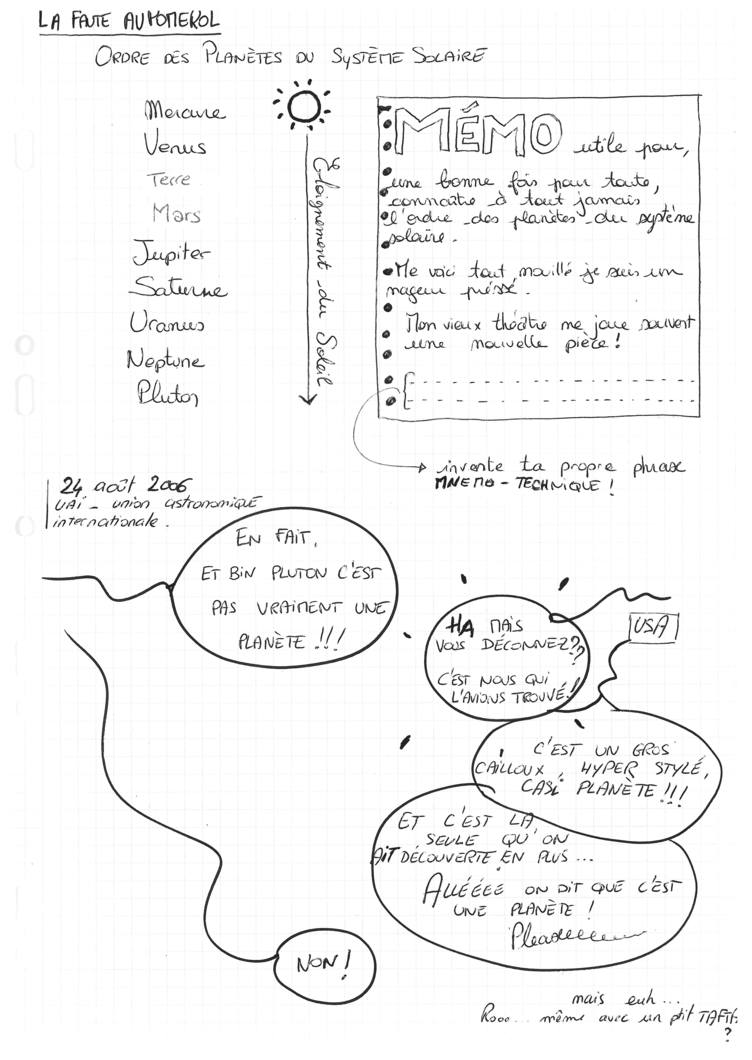 LA FAUTE AU POMEROL
ORDRE DES PLANÈTES DU SYSTÈME SOLAIRE
Mercure
Venus
Terre
Mars
Jupiter
Saturne
Uranus
Neptune
Pluton
Eloignement du Soleil
MÉMO utile pour,
une bonne fois pour toute,
connaître à tout jamais
l'ordre des planètes du système
solaire.
Me voici tout mouillé je suis un
nageur préssé.
Mon vieux théâtre me joue souvent
une nouvelle pièce !
invente ta propre phrase
MNEMO-TECHNIQUE !
24 août 2006
UAI - union astronomique
internationale.
EN FAIT,
ET BIN PLUTON C'EST
PAS VRAIMENT UNE
PLANÈTE !!!
HA MAIS
VOUS DÉCONNEZ??
C'EST NOUS QUI
L'AVIONS TROUVÉ!
USA
C'EST UN GROS
CAILLOUX, HYPER STYLÉ,
CASI PLANÈTE !!!
ET C'EST LA
SEULE QU'ON
AIT DÉCOUVERTE EN PLUS...
ALLÉÉÉÉ ON DIT QUE C'EST
UNE PLANÈTE !
NON !
mais euh...
Rooo... même avec un ptit
?